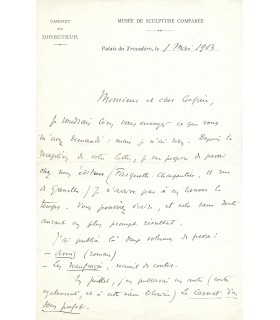 CABINET
DU
DIRECTEUR
MUSÉE DE SCULPTURE COMPARÉE
Palais du Trocadéro, le 1 Mai 1903
Monsieur et cher Confrère,
Je voudrais bien vous envoyer ce que vous
m'avez demandé : mais je n'ai rien. Depuis la
réception de votre lettre, je me propose de passer
chez mon éditeur (Fasquelle Charpentier, 11 rue
de Grenelle) Je n'arrive pas à en trouver le
temps. Vous pourriez écrire, et cela sans doute
aurait un plus prompt résultat.
J'ai publié là deux volumes de prose :
— (roman)
— Les Naufragés, recueil de contes.
En juillet, j'en publierai un autre (contes
également, et à cette même librairie) Le Carnet d'un